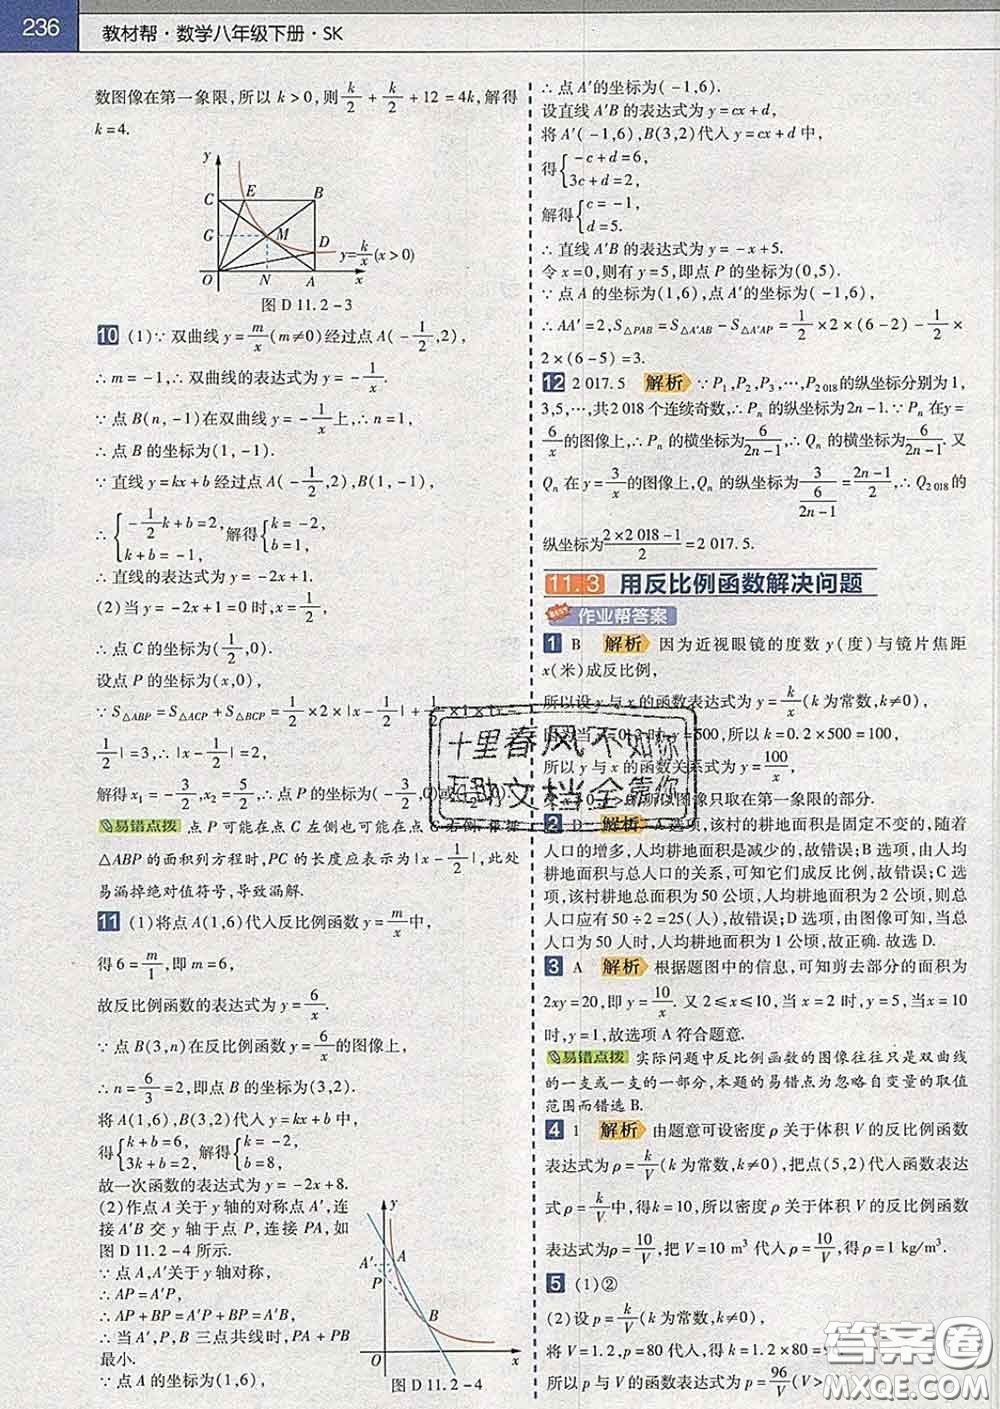 236 教材帮·数学八年级下册·SK
数图像在第一象限,所以 k>0,则 k/2 + k/2 +12=4k,解得
k=4.
y
C E B
G M D
y=k/x(x>0)
O N A x
图 D 11.2-3
10 (1)∵双曲线 y=m/x(m≠0)经过点 A(-1/2,2),
∴m=-1,∴双曲线的表达式为 y=-1/x.
∵点 B(n,-1)在双曲线 y=-1/x上,∴n=1.
∴点 B 的坐标为(1,-1).
∵直线 y=kx+b 经过点 A(-1/2,2),B(1,-1),
∴{-1/2k+b=2, k+b=-1, 解得{k=-2, b=1.
∴直线的表达式为 y=-2x+1.
(2)当 y=-2x+1=0 时,x=1/2,
∴点 C 的坐标为(1/2,0).
设点 P 的坐标为(x,0),
∵S△ABP=S△ACP+S△BCP=1/2×2×|x-1/2|+1/2×1×|x-
1/2|=3,∴|x-1/2|=2,
解得 x1=-3/2,x2=5/2,∴点 P 的坐标为(-3/2,0)或(5/2,0).
易错点拨 点 P 可能在点 C 左侧也可能在点 C 右侧,根据
△ABP 的面积列方程时,PC 的长度应表示为|x-1/2|,此处
易漏掉绝对值符号,导致漏解.
11 (1)将点 A(1,6)代入反比例函数 y=m/x中,
得 6=m/1,即 m=6,
故反比例函数的表达式为 y=6/x.
∵点 B(3,n)在反比例函数 y=6/x的图像上,
∴n=6/3=2,即点 B 的坐标为(3,2).
将 A(1,6),B(3,2)代入 y=kx+b 中,
得{k+b=6, 3k+b=2, 解得{k=-2, b=8,
故一次函数的表达式为 y=-2x+8.
(2)作点 A 关于 y 轴的对称点 A′,连
接 A′B 交 y 轴于点 P,连接 PA,如
图 D 11.2-4 所示.
∵点 A,A′关于 y 轴对称,
∴AP=A′P,
∴AP+BP=A′P+BP=A′B,
∴当 A′,P,B 三点共线时,PA+PB
最小.
∵点 A 的坐标为(1,6),
y
A′ A
P
B
O x
图 D 11.2-4
∴点 A′的坐标为(-1,6).
设直线 A′B 的表达式为 y=cx+d,
将 A′(-1,6),B(3,2)代入 y=cx+d 中,
得{-c+d=6, 3c+d=2,
解得{c=-1, d=5.
∴直线 A′B 的表达式为 y=-x+5.
令 x=0,则有 y=5,即点 P 的坐标为(0,5).
∵点 A 的坐标为(1,6),点 A′的坐标为(-1,6),
∴AA′=2,S△PAB=S△A′AB-S△A′AP=1/2×2×(6-2)-1/2×
2×(6-5)=3.
12 2 017.5 解析 ∵P1,P2,P3,…,P2 018的纵坐标分别为 1,
3,5,…,共 2 018 个连续奇数,∴Pn 的纵坐标为 2n-1.∵Pn 在 y=
6/x的图像上,∴Pn 的横坐标为6/(2n-1),∴Qn 的横坐标为6/(2n-1).又
Qn 在 y=3/x的图像上,∴Qn 的纵坐标为3/(6/(2n-1))=(2n-1)/2,∴Q2 018的
纵坐标为(2×2 018-1)/2=2 017.5.
11.3 用反比例函数解决问题
作业帮答案
1 B 解析 因为近视眼镜的度数 y(度)与镜片焦距
x(米)成反比例,
所以设 y 与 x 的函数表达式为 y=k/x(k 为常数,k≠0),
因为当 x=0.2 时,y=500,所以 k=0.2×500=100,
所以 y 与 x 的函数关系式为 y=100/x.
所以图像只取在第一象限的部分.
2 D 解析 A 选项,该村的耕地面积是固定不变的,随着
人口的增多,人均耕地面积是减少的,故错误;B 选项,由人均
耕地面积与总人口的关系,可知它们成反比例,故错误;C 选
项,该村耕地总面积为 50 公顷,人均耕地面积为 2 公顷,则总
人口应有 50÷2=25(人),故错误;D 选项,由图像可知,当总
人口为 50 人时,人均耕地面积为 1 公顷,故正确.故选 D.
3 A 解析 根据题图中的信息,可知剪去部分的面积为
2xy=20,即 y=10/x.又 2≤x≤10,当 x=2 时,y=5,当 x=10
时,y=1,故选项 A 符合题意.
易错点拨 实际问题中反比例函数的图像往往只是双曲线
的一支或一支的一部分,本题的易错点为忽略自变量的取值
范围而错选 B.
4 1 解析 由题意可设密度 ρ 关于体积 V 的反比例函数
表达式为 ρ=k/V(k 为常数,k≠0),把点(5,2)代入函数表达
式 ρ=k/V中,得 k=10,所以密度 ρ 关于体积 V 的反比例函数
表达式为 ρ=10/V,把 V=10 m³ 代入 ρ=10/V,得 ρ=1 kg/m³.
5 (1)②
(2)设 p=k/V(k 为常数,k≠0),
将 V=1.2,p=80 代入,得 k=1.2×80=9
所以 p 与 V 的函数表达式为 p=96/V(V>
十里春风不如你
互助文档全靠你
答案圈
MXQE.COM